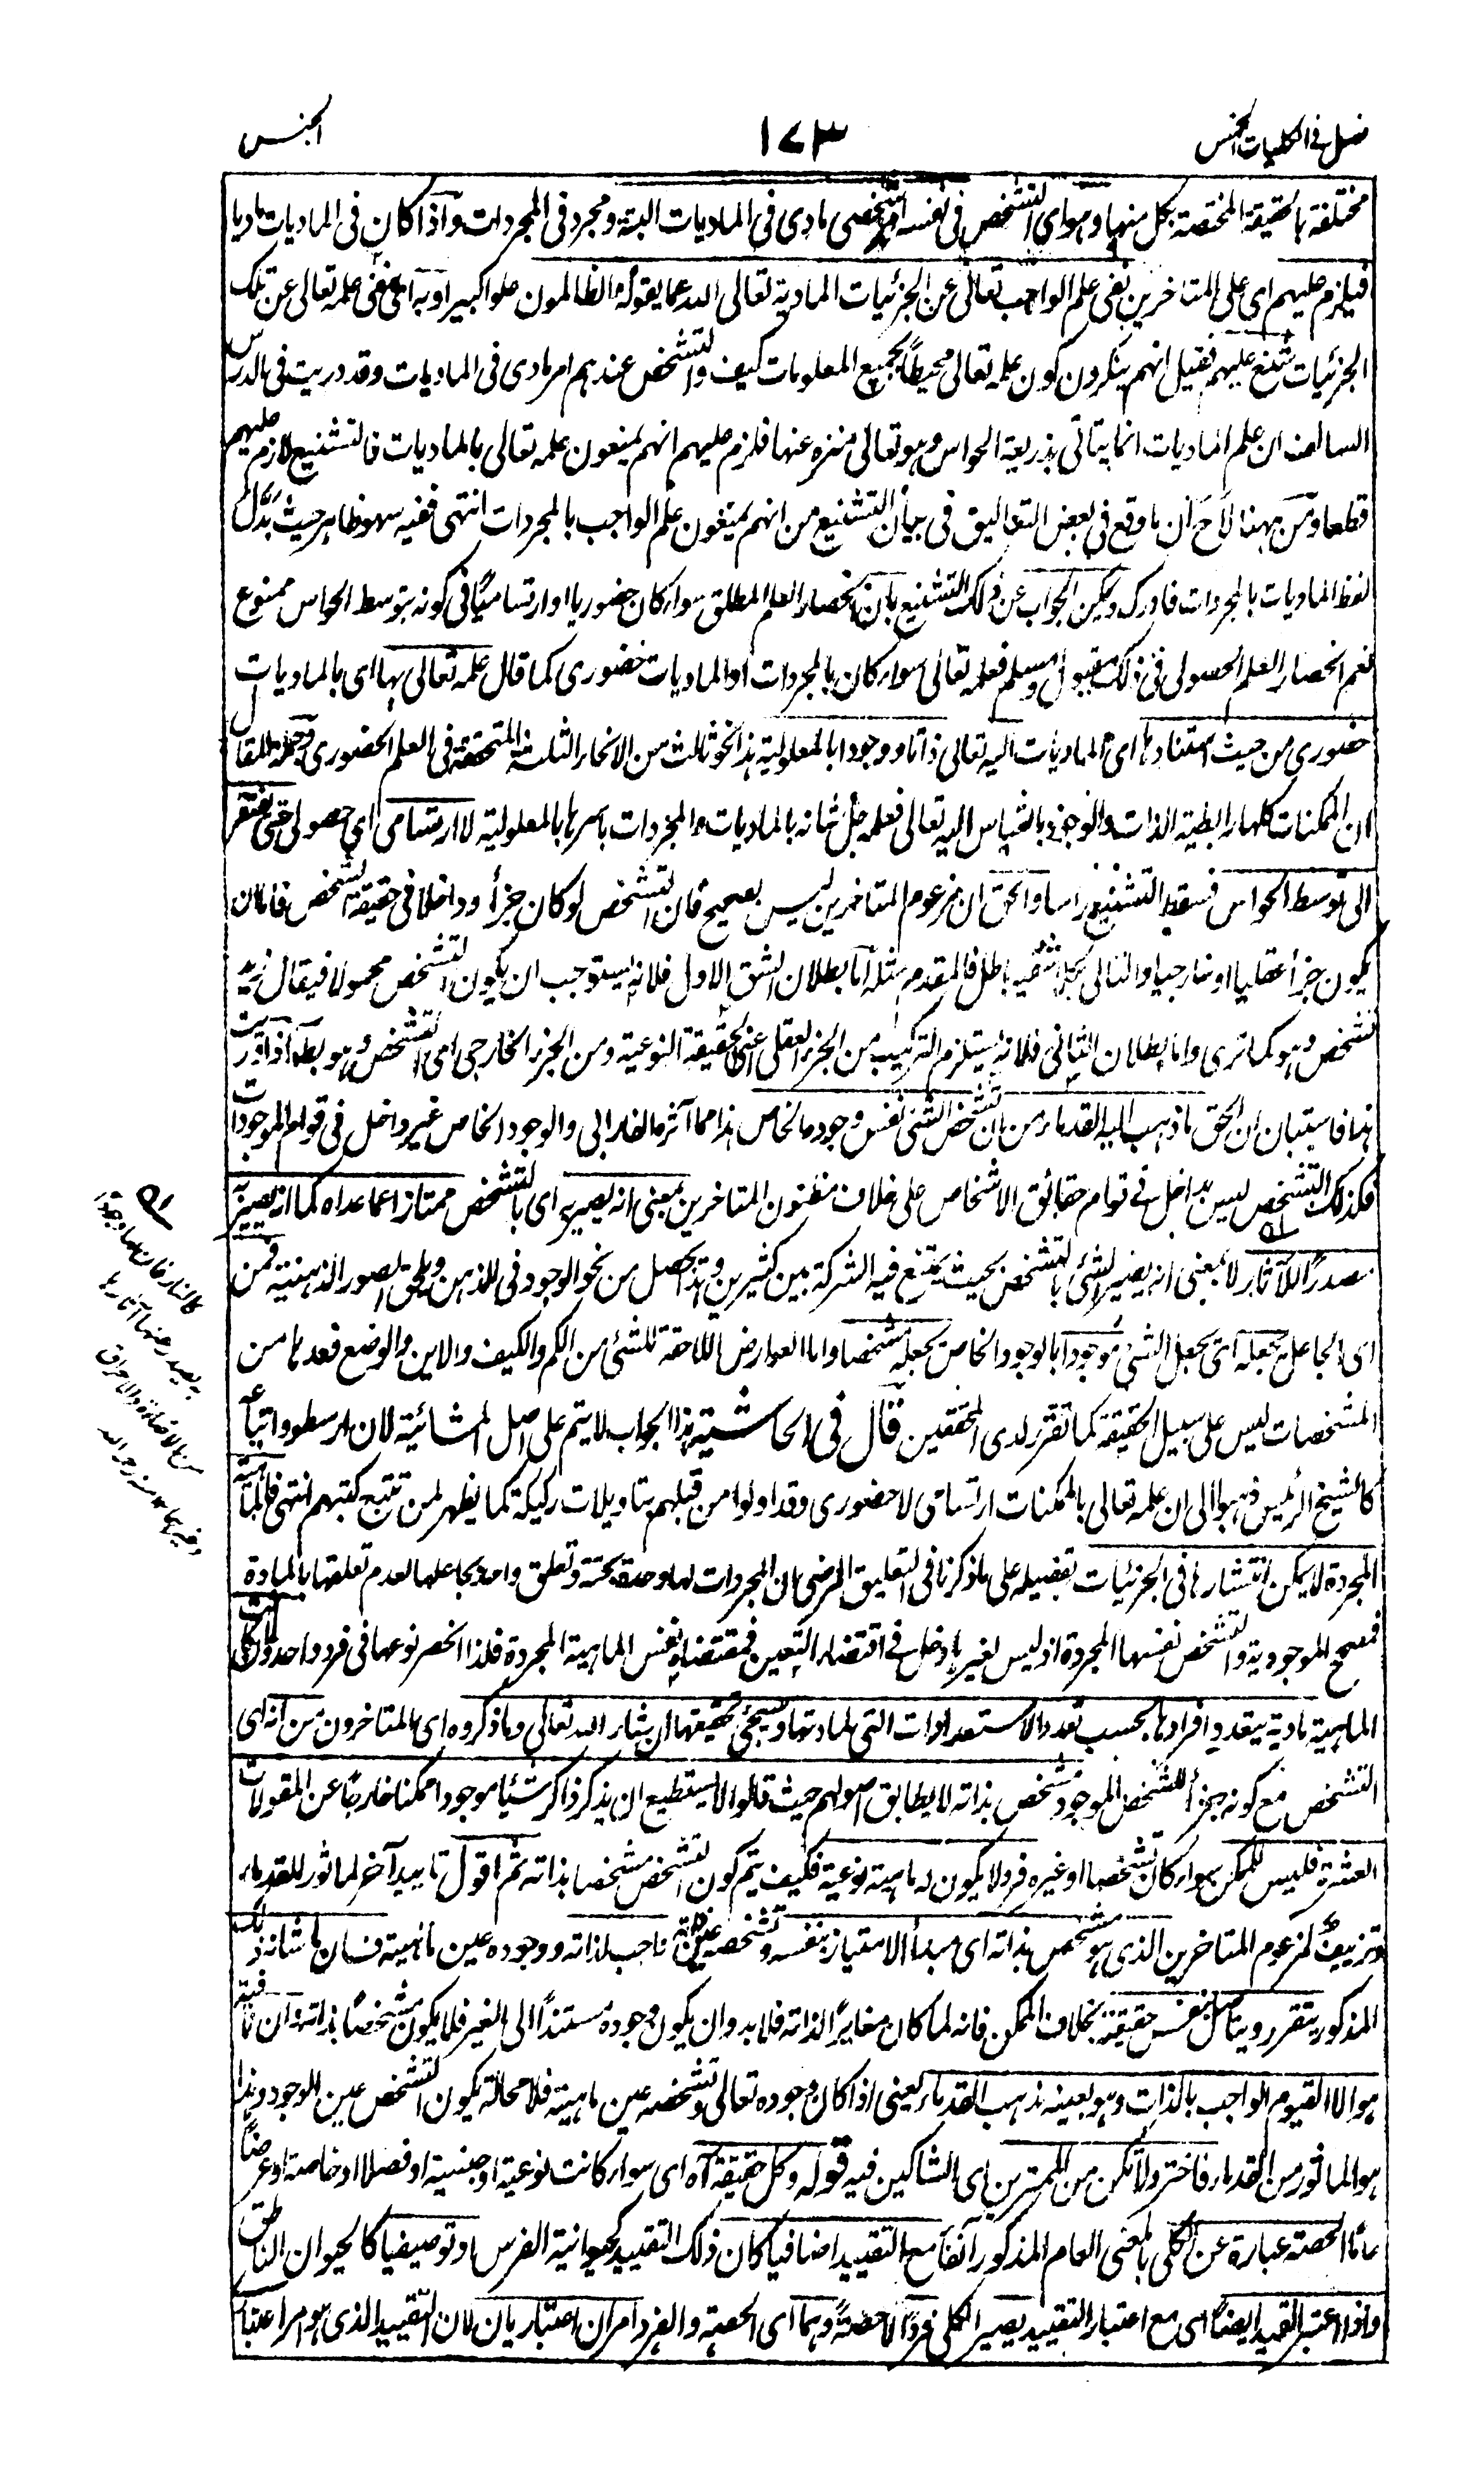 فصل فی الکلیات الخمس
۱۷۳
الجنس
مختلفة بالحقیقة المختصة بکل منہا وہو ای التشخص فی نفسہ امر شخصی مادی فی المادیات البتۃ ومجرد فی المجردات وآذا کان فی المادیات مادیا
فیلزم علیہم ای علی المتاخرین نفی علم الواجب تعالی عن الجزئیات المادیة تعالی اللہ عما یقولہ الظالمون علوا کبیرا وبہ ای بنفی علمہ تعالی عن تلک
الجزئیات شنع علیہم فقیل انہم ینکرون کون علمہ تعالی محیطاً بجمیع المعلومات کیف والتشخص عندہم امر مادی فی المادیات وقد دریت فی الدرس
السالف ان علم المادیات انما یتاتی بذریعة الحواس وہو تعالی منزہ عنہا فلزم علیہم انہم یمنعون علمہ تعالی بالمادیات فالتشنیع لازم علیہم
قطعا ومن ہہنا لاح ان ما وقع فی بعض التعالیق فی بیان التشنیع من انہم یمنعون علم الواجب بالمجردات انتہی ففیہ سہو ظاہر حیث بدّل
لفظ المادیات بالمجردات فادرک ویمکن الجواب عن ذلک التشنیع بان انحصار العلم المطلق سواء کان حضوریا او ارتسامیًا فی کونہ بتوسط الحواس ممنوع
نعم انحصار العلم الحصولی فی ذلک مقبول ومسلم فعلمہ تعالی سواء کان بالمجردات او المادیات حضوری کما قال علمہ تعالی بہا ای بالمادیات
حضوری من حیث استنادہا ای المادیات الیہ تعالی ذاتا ووجودا بالمعلولیة ہذا نحو ثالث من الانحاء الثلثة المتحققة فی العلم الحضوری وجملة المقال
ان الممکنات کلہا رابطیة الذات والوجود بالقیاس الیہ تعالی فعلمہ جل شانہ بالمادیات والمجردات باسرہا بالمعلولیة لا ارتسامی ای حصولی حتی یفتقر
الی توسط الحواس فسقط التشنیع راسا والحق ان مزعوم المتاخرین لیس بصحیح فان التشخص لو کان جزأ وداخلا فی حقیقة الشخص فاما ان
یکون جزأ عقلیا او خارجیا والتالی بکلا شقیہ باطل فالمقدم مثلہ اما بطلان الشق الاول فلانہ یستوجب ان یکون التشخص محمولا فیقال زید
تشخص وہو کما تری واما بطلان الثانی فلانہ یستلزم الترکیب من الجزء العقلی اعنی الحقیقة النوعیة ومن الجزء الخارجی ای التشخص وہو بط آذا دریت
ہذا فاستبان ان الحق ما ذہب الیہ القدماء من ان تشخص الشئ نفس وجودہ الخاص ہذا مما آثرہ الفارابی والوجود الخاص غیر داخل فی قوام الموجودات
فکذلک التشخص لیس بداخل فی قوام حقائق الاشخاص علی خلاف مظنون المتاخرین بمعنی انہ یصیر بہ ای بالتشخص ممتازا عما عداہ کما انہ یصیر بہ
مصدرًا للآثار لا بمعنی انہ یصیر الشئ بالتشخص بحیث یمتنع فیہ الشرکة بین کثیرین وہذا یحصل من نحو الوجود فی الذہن ویلحق الصور الذہنیة فمن
ای الجاعل یجعلہ ای یجعل الشئ موجودا بالوجود الخاص یجعلہ مشخصا واما العوارض اللاحقة للشئ من الکم والکیف والاین والوضع فعدہا من
المشخصات لیس علی سبیل الحقیقة کما تقرر لدی المحققین قال فی الحاشیة ہذا الجواب لا یتم علی اصل المشائیة لان ارسطو واتباعہ
کالشیخ الرئیس ذہبوا الی ان علمہ تعالی بالممکنات ارتسامی لا حضوری وقد اولوا من قبلہم بتاویلات رکیکة کما یظہر لمن تتبع کتبہم انتہی فالماہیة
المجردة لا یمکن انتشارہا فی الجزئیات تفصیلہ علی ما ذکرنا فی التعلیق المرضی ان المجردات لہا وحدة بحتة وتعلق واحد بجاعلہا لعدم تعلقہا بالمادة
فمصحح الموجودیة والتشخص نفسہا المجردة اذ لیس لغیرہا دخل فی اقتضاء التعین فمقتضاہ نفس الماہیة المجردة فلذا انحصر نوعہا فی فرد واحد وان کانت
الماہیة مادیة یتعدد افرادہا بحسب تعدد الاستعدادات التی لمادتہا وسیجئ تحقیقہا ان شاء اللہ تعالی وما ذکروہ ای المتاخرون من انہ ای
التشخص مع کونہ جزأ للشخص الموجود متشخص بذاتہ لا یطابق اصولہم حیث قالوا لا یستطیع ان یذکر ذاکر شیئا موجودا ممکنا خارجًا عن المقولات
العشرة فلیس للممکن سواء کان تشخصا او غیرہ فرد لا یکون لہ ماہیة نوعیة فکیف یتم کون التشخص مشخصا بذاتہ ثم اقول تایید آخر لماثور القدماء
وتزییف لمزعوم المتاخرین الذی ہو متشخص بذاتہ ای مبدأ الامتیاز بنفسہ وتشخصہ عین ذاتہ واجب لذاتہ ووجودہ عین ماہیة فان ما شانہ ذلک
المذکور یتقرر ویتاصل بنفس حقیقة بخلاف الممکن فانہ لما کان مغایرًا لذاتہ فلا بد وان یکون وجودہ مستندًا الی الغیر فلا یکون متشخصًا بذاتہ وان
ہو الا القیوم الواجب بالذات وہو بعینہ مذہب القدماء یعنی اذا کان وجودہ تعالی وتشخصہ عین ماہیة فلا محالة یکون التشخص عین الوجود وہذا
ہو الماثور من القدماء فاختر ولا تکن من الممترین ای الشاکین فیہ قولہ وکل حقیقة آہ ای سواء کانت نوعیة او جنسیة او فصلا او خاصة او عرضًا
عامًا الحصة عبارة عن الکلی بالمعنی العام المذکور آنفًا مع التقیید اضافیا کان ذلک التقیید کحیوانیة الفرس او توصیفیا کالحیوان الناطق
واذا اعتبر القید ایضًا ای مع اعتبار التقیید یصیر الکلی فردًا لا حصةً وہما ای الحصة والفرد امران اعتباریان لان التقیید الذی ہو امر اعتبار
کالنار فان لہا وجودا
بہ یصدر عنہا آثارہا
من الاضاءة والاحراق
وغیرہما ۱۲ منہ رحمہ اللہ